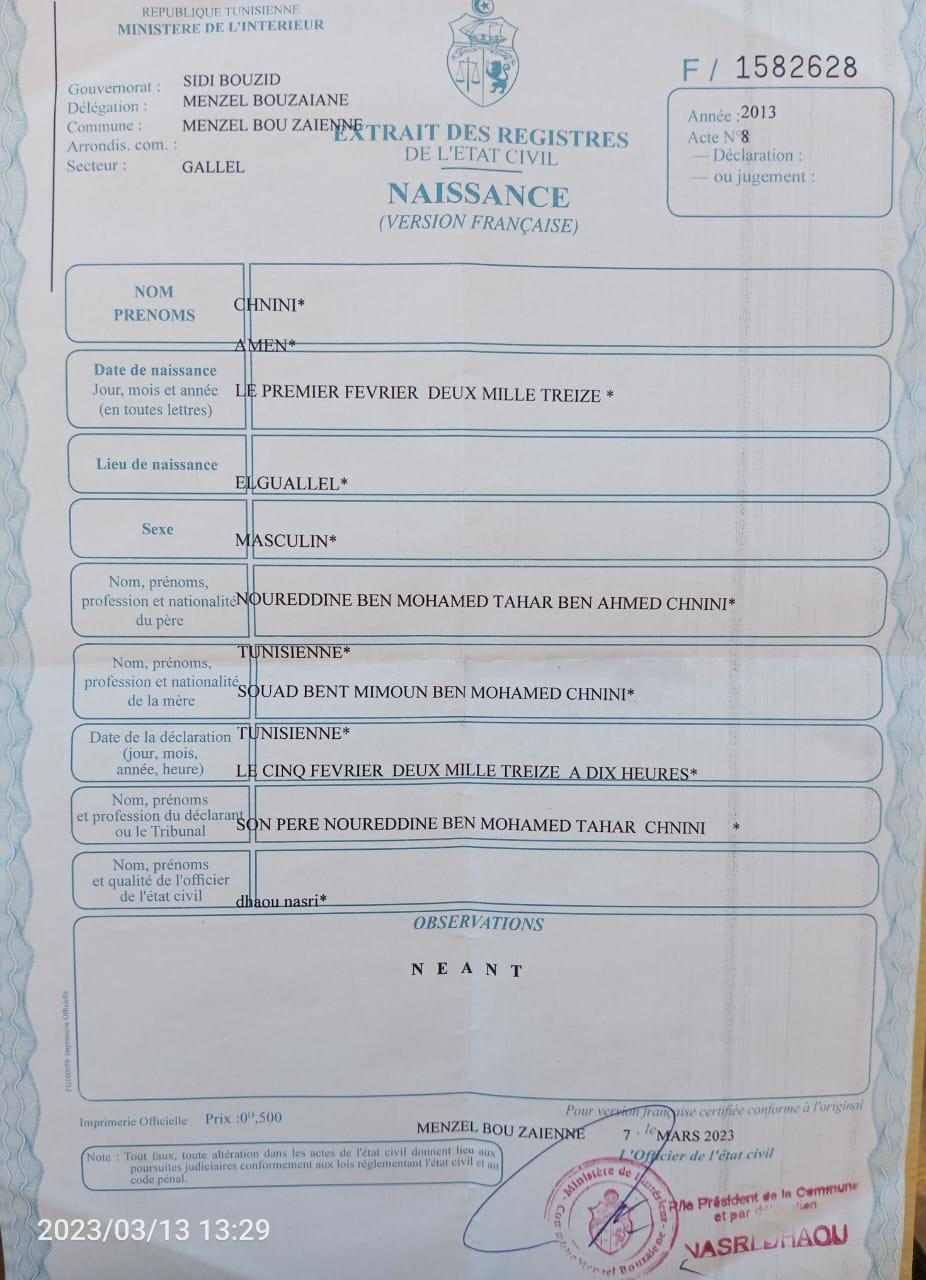 REPUBLIQUE TUNISIENNE
MINISTERE DE L'INTERIEUR
Gouvernorat : SIDI BOUZID
Délégation : MENZEL BOUZAIANE
Commune : MENZEL BOU ZAIENNE
Arrondis. com. :
Secteur : GALLEL
EXTRAIT DES REGISTRES
DE L'ETAT CIVIL
NAISSANCE
(VERSION FRANÇAISE)
F / 1582628
Année :2013
Acte N°8
— Déclaration :
— ou jugement :
NOM
PRENOMS
CHNINI*
AMEN*
Date de naissance
Jour, mois et année
(en toutes lettres)
LE PREMIER FEVRIER DEUX MILLE TREIZE *
Lieu de naissance
ELGUALLEL*
Sexe
MASCULIN*
Nom, prénoms,
profession et nationalité
du père
NOUREDDINE BEN MOHAMED TAHAR BEN AHMED CHNINI*
TUNISIENNE*
Nom, prénoms,
profession et nationalité
de la mère
SOUAD BENT MIMOUN BEN MOHAMED CHNINI*
TUNISIENNE*
Date de la déclaration
(jour, mois,
année, heure)
LE CINQ FEVRIER DEUX MILLE TREIZE A DIX HEURES*
Nom, prénoms
et profession du déclarant
ou le Tribunal
SON PERE NOUREDDINE BEN MOHAMED TAHAR CHNINI *
Nom, prénoms
et qualité de l'officier
de l'état civil
dhaou nasri*
OBSERVATIONS
N E A N T
Imprimerie Officielle
Imprimerie Officielle Prix :0ᴰ,500
Pour version française certifiée conforme à l'original
MENZEL BOU ZAIENNE 7 . le MARS 2023
L'Officier de l'état civil
Note : Tout faux, toute altération dans les actes de l'état civil donnent lieu aux
poursuites judiciaires conformement aux lois réglementant l'état civil et au
code pénal.
Ministère de l'Intérieur - Commune Menzel Bouzaiene
P/le Président de la Commune
et par
NASRI DHAOU
2023/03/13 13:29